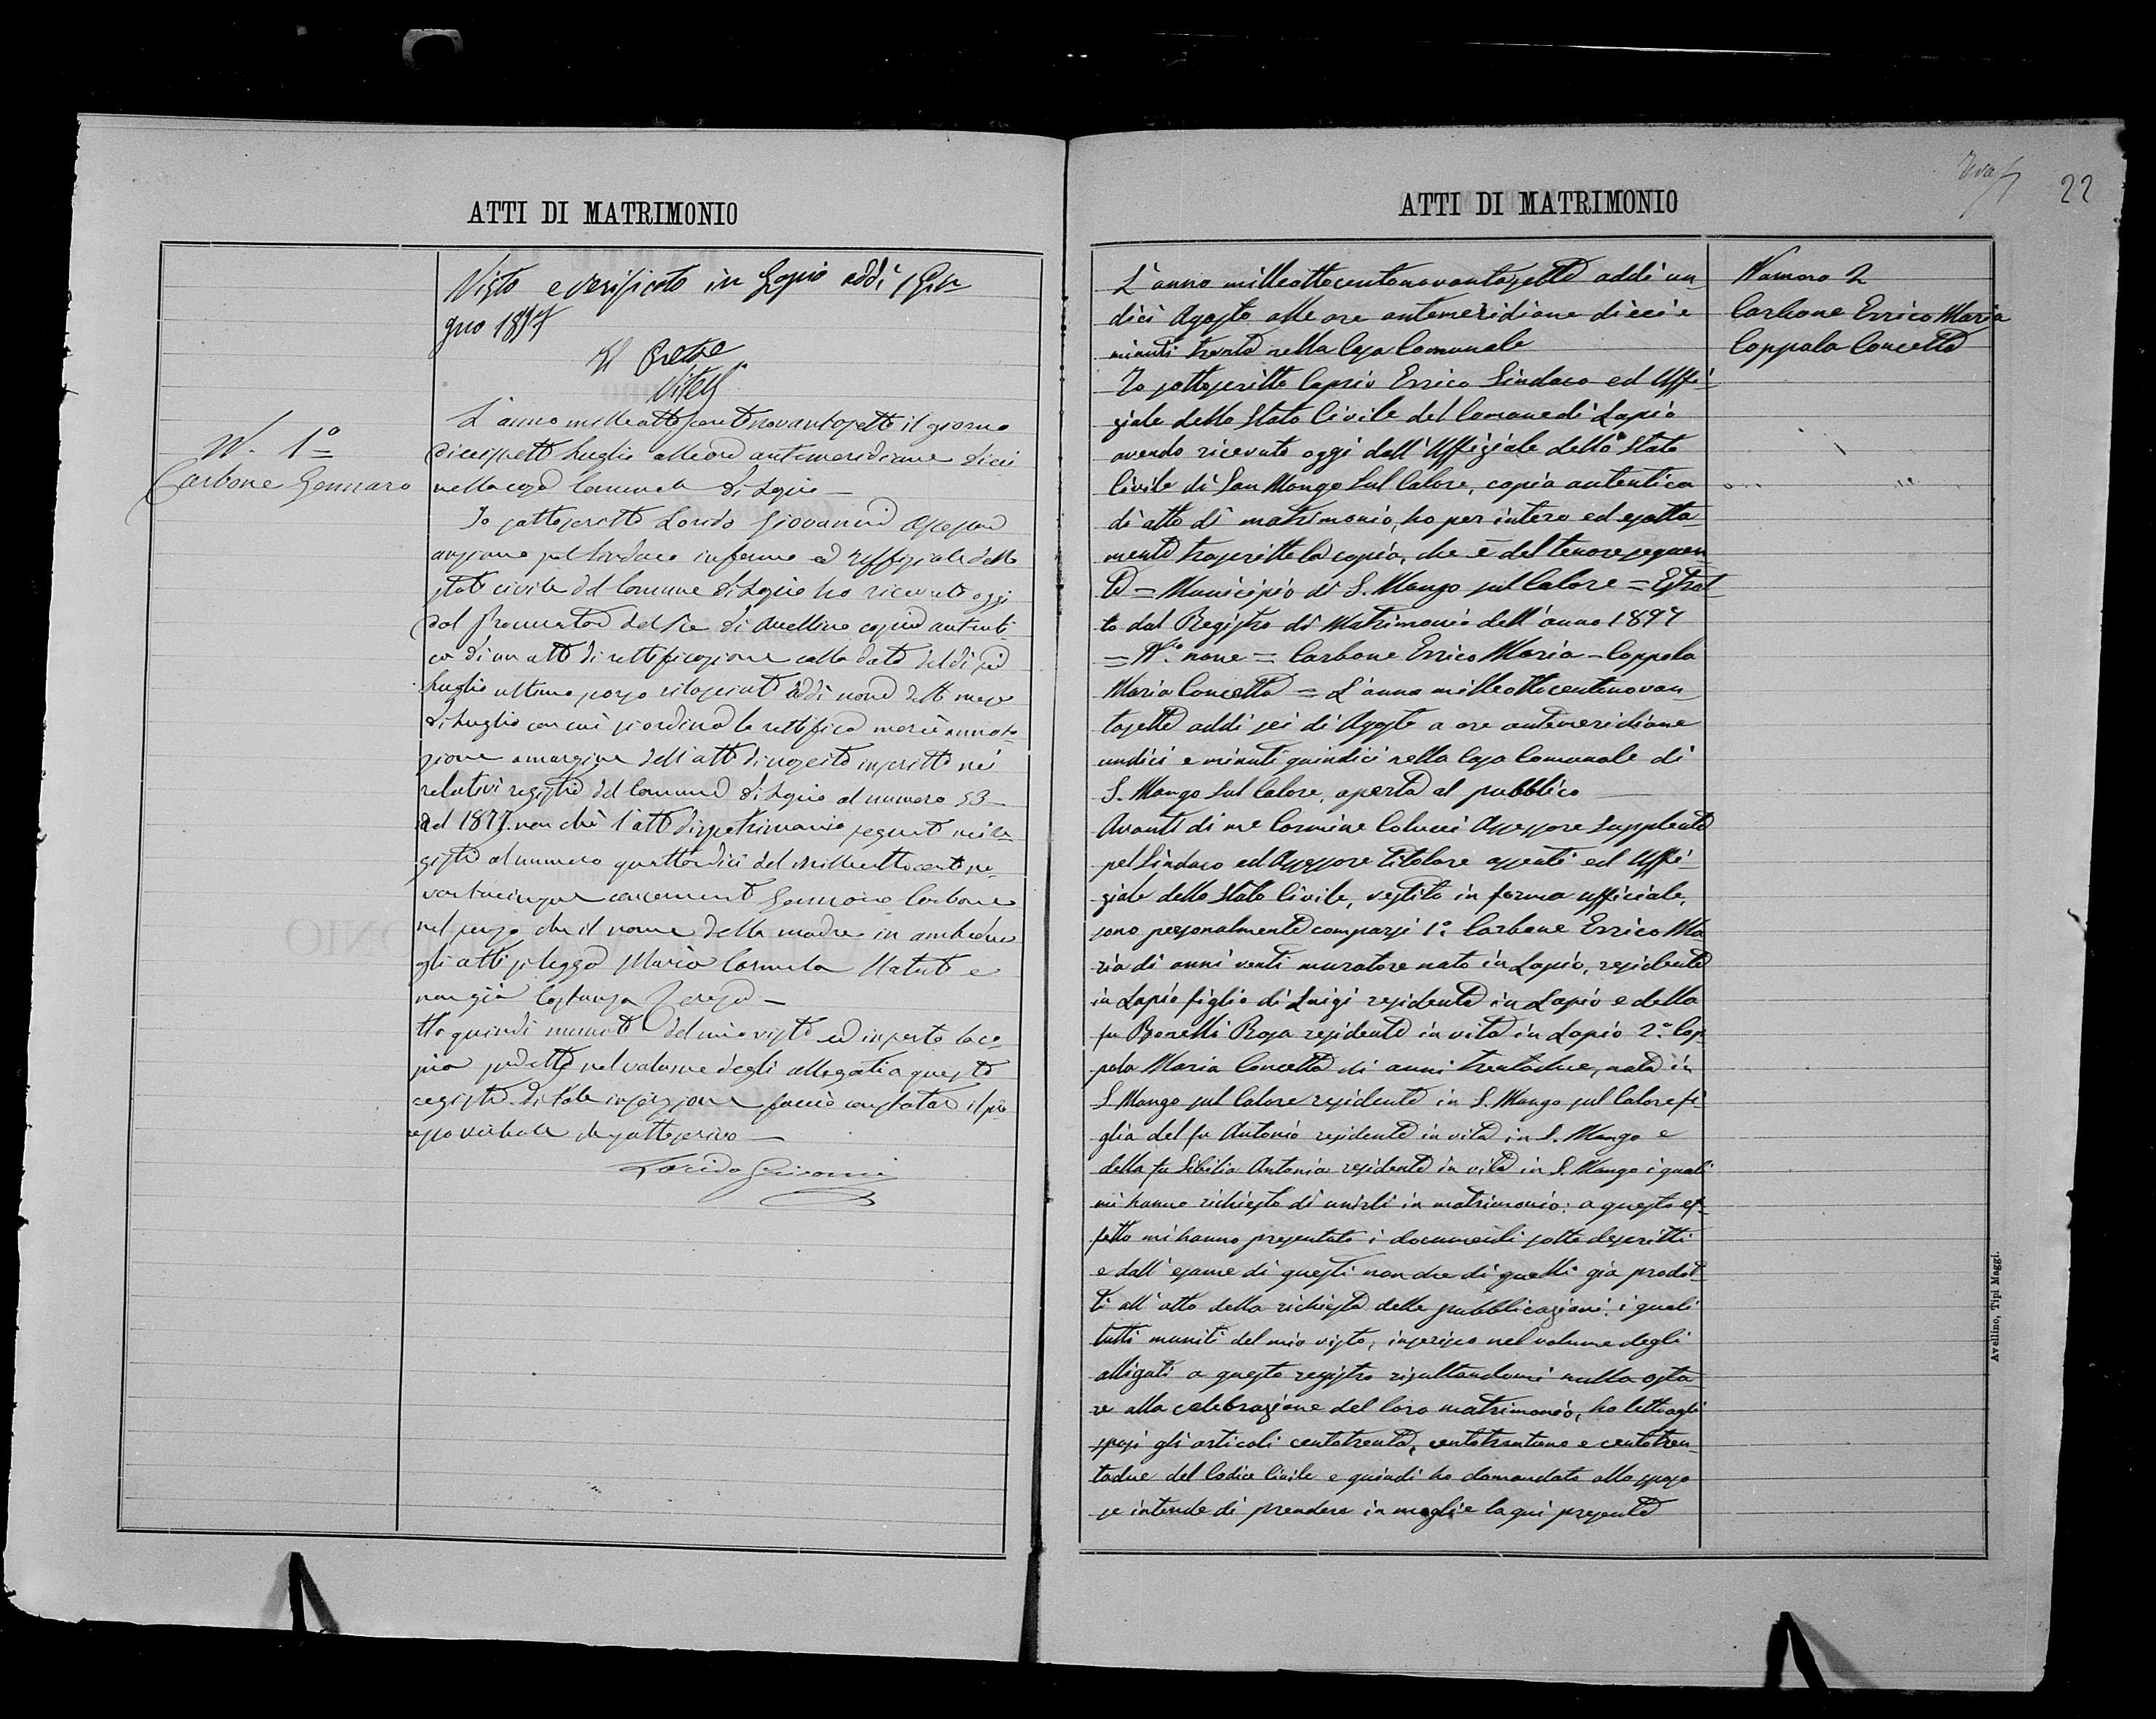 ATTI DI MATRIMONIO
Visto e verificato in Lapio addì 1 Giu
gno 1897
Il Pretore
Vitelli
N. 1º
Carbone Gennaro
L'anno milleottocentonovantasette il giorno
diciassette Luglio alle ore antimeridiane dieci
nella casa Comunale di Lapio
Io sottoscritto Lorido Giovanni Assessore
anziano pel Sindaco infermo ed Uffiziale dello
stato civile del Comune di Lapio ho ricevuto oggi
dal Procuratore del Re di Avellino copia autenti
ca di un atto di rettificazione colla data del dì sei
Luglio ultimo scorso rilasciata addì nove detto mese
di Luglio con cui si ordina la rettifica mercè annota
zione a margine dell'atto di nascita inscritto nei
relativi registri del Comune di Lapio al numero 53
del 1877 non che l'atto di matrimonio seguito nei re
gistri al numero quattordici del milleottocentono
vantacinque concernenti Gennaro Carbone
nel senso che il nome della madre in ambedue
gli atti si legga Maria Carmela e
non già Costanza Teresa
Ho quindi munito del mio visto ed inserto la co
pia suddetta nel volume degli allegati a questo
registro. Di tale inserzione faccio constatare il pre
sente verbale che sottoscrivo
Lorido Giovanni
ATTI DI MATRIMONIO
22
Numero 2
Carbone Errico Maria
Coppola Concetta
L'anno milleottocentonovantasette addì un
dici Agosto alle ore antimeridiane dieci e
minuti trenta nella Casa Comunale
Io sottoscritto Caprio Errico Sindaco ed Uffi
ziale dello Stato Civile del Comune di Lapio
avendo ricevuto oggi dall'Uffiziale dello Stato
Civile di San Mango Sul Calore, copia autentica
di atto di matrimonio, ho per intero ed esatta
mente trascritta la copia, che è del tenore seguen
te = Municipio di S. Mango sul Calore = Estrat
to dal Registro di Matrimonio dell'anno 1897
= N.º nove = Carbone Errico Maria - Coppola
Maria Concetta = L'anno milleottocentonovan
tasette addì sei di Agosto a ore antimeridiane
undici e minuti quindici nella Casa Comunale di
S. Mango Sul Calore, aperta al pubblico
Avanti di me Carmine Colucci Assessore supplente
pel Sindaco ed Assessore titolare assenti ed Uffi
ziale dello Stato Civile, vestito in forma ufficiale,
sono personalmente comparsi 1º. Carbone Errico Ma
ria di anni venti muratore nato in Lapio, residente
in Lapio figlio di Luigi residente in Lapio e della
fu Borelli Rosa residente in vita in Lapio 2º. Cop
pola Maria Concetta di anni trentadue, nata in
S. Mango sul Calore residente in S. Mango sul Calore fi
glia del fu Antonio residente in vita in S. Mango e
della fu Sibilia Antonia residente in vita in S. Mango i quali
mi hanno richiesto di unirli in matrimonio: a questo ef
fetto mi hanno presentato i documenti sotto descritti
e dall'esame di questi non che di quelli già prodot
ti all'atto della richiesta delle pubblicazioni; i quali
tutti muniti del mio visto, inserisco nel volume degli
alligati a questo registro risultandomi nulla osta
re alla celebrazione del loro matrimonio, ho letto agli
sposi gli articoli centotrenta, centotrentuno e centotren
tadue del Codice Civile e quindi ho domandato allo sposo
se intende di prendere in moglie la qui presente
Avellino, Tipi Maggi.